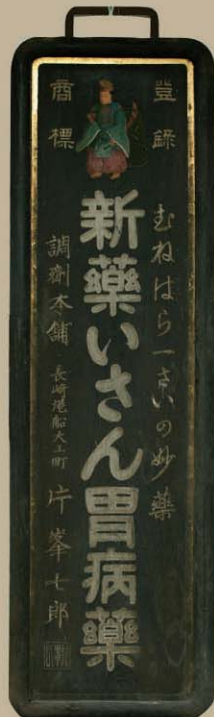 登録
商標
むねはら一さいの妙藥
新藥いさん胃病藥
調劑本舗 長崎港船大工町 片峯七郎